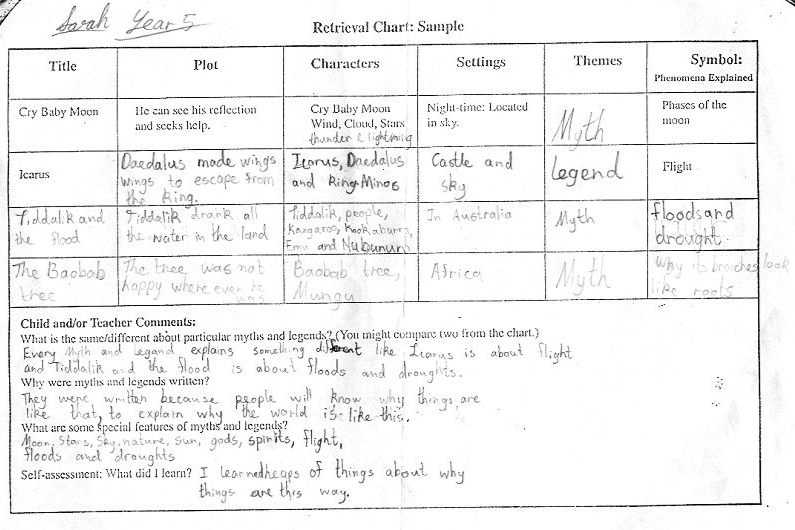 Sarah Year 5
Retrieval Chart: Sample
Title Plot Characters Settings Themes Symbol:
Phenomena Explained
Cry Baby Moon
He can see his reflection
and seeks help.
Cry Baby Moon
Wind, Cloud, Stars
thunder & lightning
Night-time: Located
in sky.
Myth
Phases of the
moon
Icarus
Daedalus made wings
wings to escape from
the King.
Icarus, Daedalus
and King Minos
Castle and
sky
legend
Flight
Tiddalik and
the flood
Tiddalik drank all
the water in the land
Tiddalik, people,
Kangaroo, Kookaburra,
Emu and Nubunum
In Australia
Myth
floods and
drought.
The Baobab
tree
The tree was not
happy where ever he
was
Baobab tree,
Mungu
Africa
Myth
Why its branches look
like roots
Child and/or Teacher Comments:
What is the same/different about particular myths and legends? (You might compare two from the chart.)
Every myth and legand explains something different like Icarus is about flight
and Tiddalik and the flood is about floods and droughts.
Why were myths and legends written?
They were written because people will know why things are
like that, to explain why the world is like this.
What are some special features of myths and legends?
Moon, Stars, Sky, nature, sun, gods, spirits, flight,
floods and droughts
Self-assessment: What did I learn? I learned heaps of things about why
things are this way.